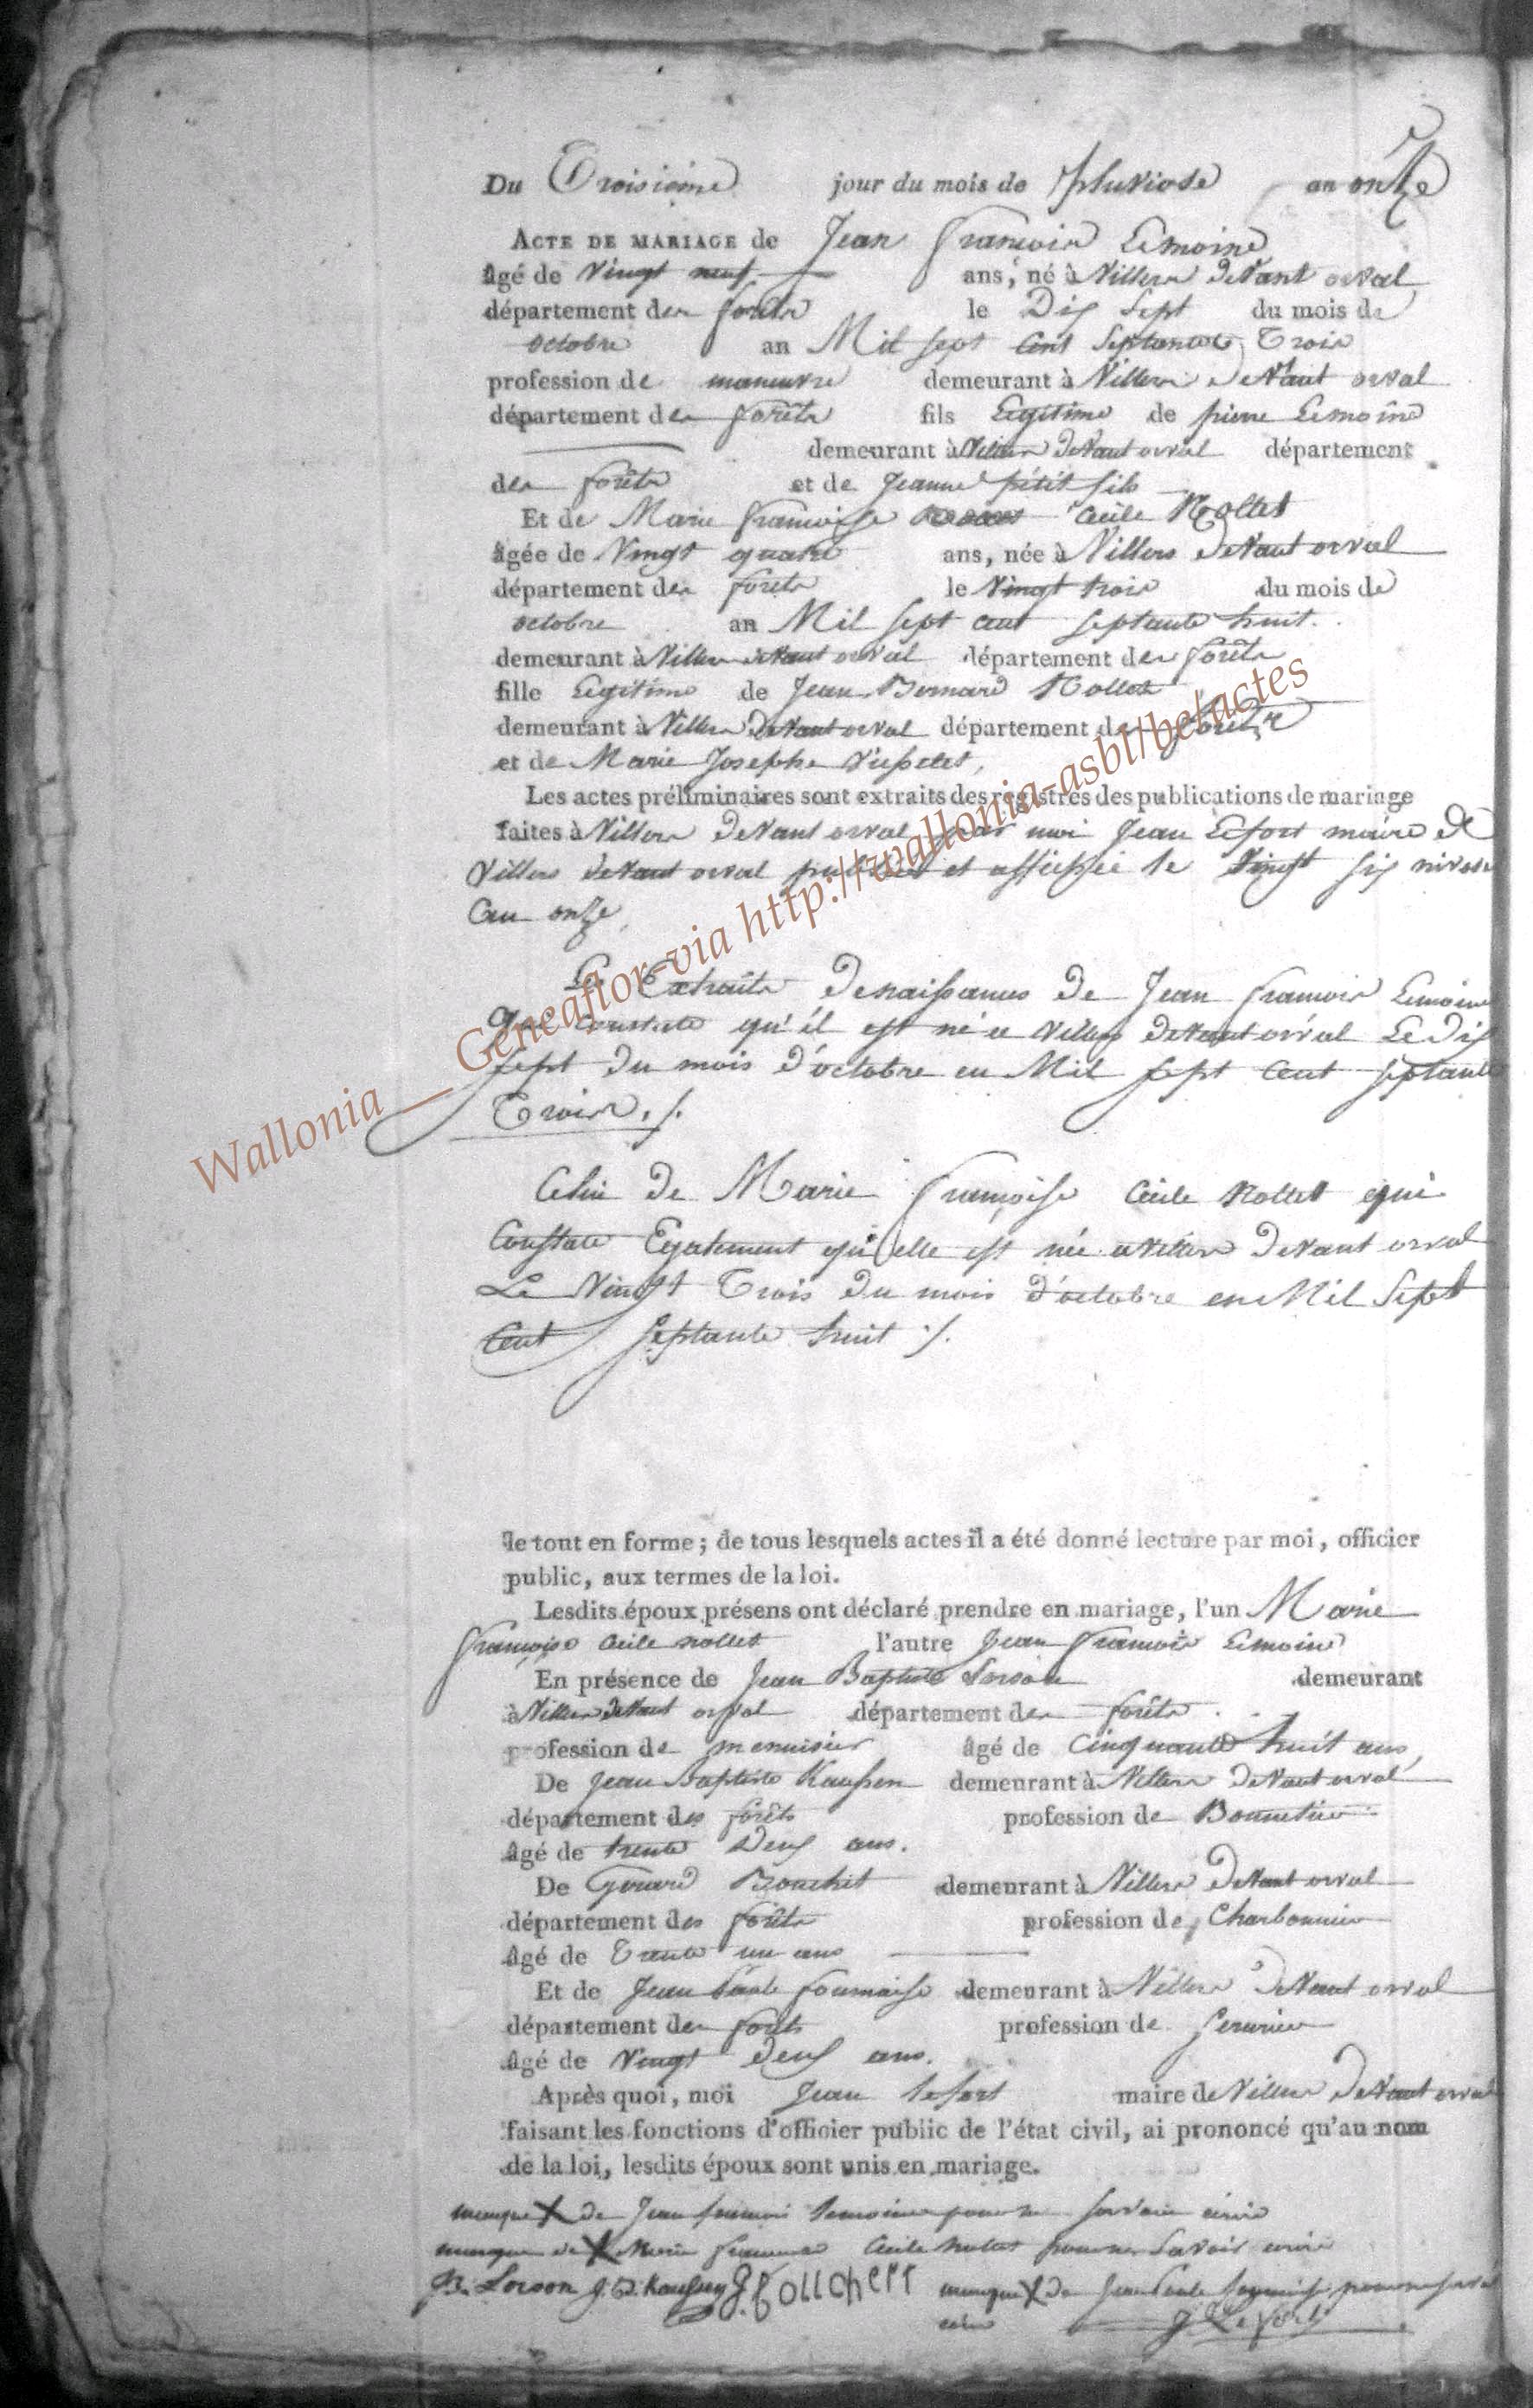 Du Troisieme jour du mois de pluviose an onze
ACTE DE MARIAGE de Jean François Lemoine
âgé de vingt neuf ans, né à Villers devant orval
département des forêts le Dix sept du mois de
octobre an Mil sept cent septante Trois
profession de manœuvre demeurant à Villers devant orval
département des forêts fils Legitime de pierre Lemoine
demeurant à Villers devant orval département
des forêts et de Jeanne petit fils
Et de Marie françoise Cecile Nollet
âgée de Vingt quatre ans, née à Villers devant orval
département des forêts le vingt trois du mois de
octobre an Mil sept cent septante huit.
demeurant à Villers devant orval département des forêts
fille Legitime de Jean Bernard Nollet
demeurant à Villers devant orval département des forêts
et de Marie Josephe
Les actes préliminaires sont extraits des registres des publications de mariage
faites à Villers devant orval par moi Jean Lefort maire de
Villers devant orval publiée et affichée le vingt six nivose
l'an onze,
Les Extraits de naissances de Jean françois Lemoine
qui constate qu'il est né a Villers devant orval Le dix
sept du mois d'octobre en Mil sept Cent septante
Trois ./.
Celui de Marie françoise Cecile Nollet qui
Constate Egalement qu'elle est née a Villers devant orval
Le Vingt Trois du mois d'octobre en Mil Sept
Cent septante huit ./.
le tout en forme ; de tous lesquels actes il a été donné lecture par moi, officier
public, aux termes de la loi.
Lesdits époux présens ont déclaré prendre en mariage, l'un Marie
françoise Cecile nollet l'autre Jean françois Lemoine
En présence de Jean Baptiste Lorson demeurant
à Villers devant orval département des forêts
profession de menuisier âgé de Cinquante huit ans
De Jean Baptiste Kaussen demeurant à Villers devant orval
département des forêts profession de Bonnetier
âgé de trente Deux ans.
De Gerard Bouchet demeurant à Villers devant orval
département des forêts profession de Charbonnier
âgé de Trente un ans
Et de Jean Paul fournaise demeurant à Villers devant orval
département des forêts profession de serurier
âgé de Vingt deux ans.
Après quoi, moi Jean Lefort maire de Villers devant orval
faisant les fonctions d'officier public de l'état civil, ai prononcé qu'au nom
de la loi, lesdits époux sont unis en mariage.
marque X de Jean françois Lemoine pour ne savoir écrire
marque de X Marie françoise Cecile nollet pour ne savoir écrire
Lorson J. B. Kaussen marque X de Jean Paul fournaise pour ne savoir
écrire J Lefort
Wallonia __ Geneaflor-via http://wallonia-asbl/be/actes